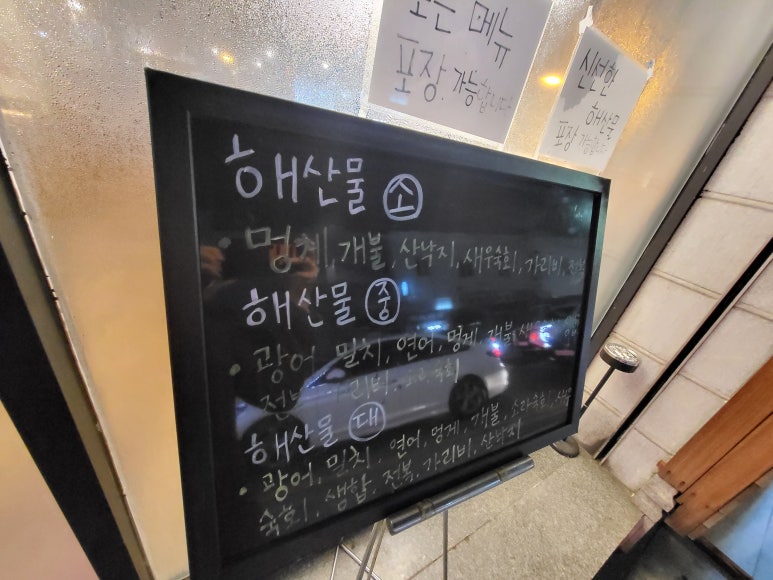 모든 메뉴
포장 가능합니다
신선한
해산물
포장 가능합니다
해산물 소
• 멍게, 개불, 산낙지, 새우숙회, 가리비, 전복
해산물 중
• 광어, 밀치, 연어, 멍게, 개불,
전복, 가리비, 숙회
해산물 대
• 광어, 밀치, 연어, 멍게, 개불, 소라숙회,
숙회, 생합, 전복, 가리비, 산낙지